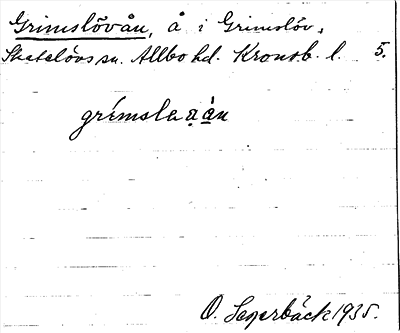 Grimslövån, å i Grimslöv,
Skatelövs sn. Allbo hd. Kronob. l. 5.
grímsla̤ á̤n
O. Segerbäck 1935.